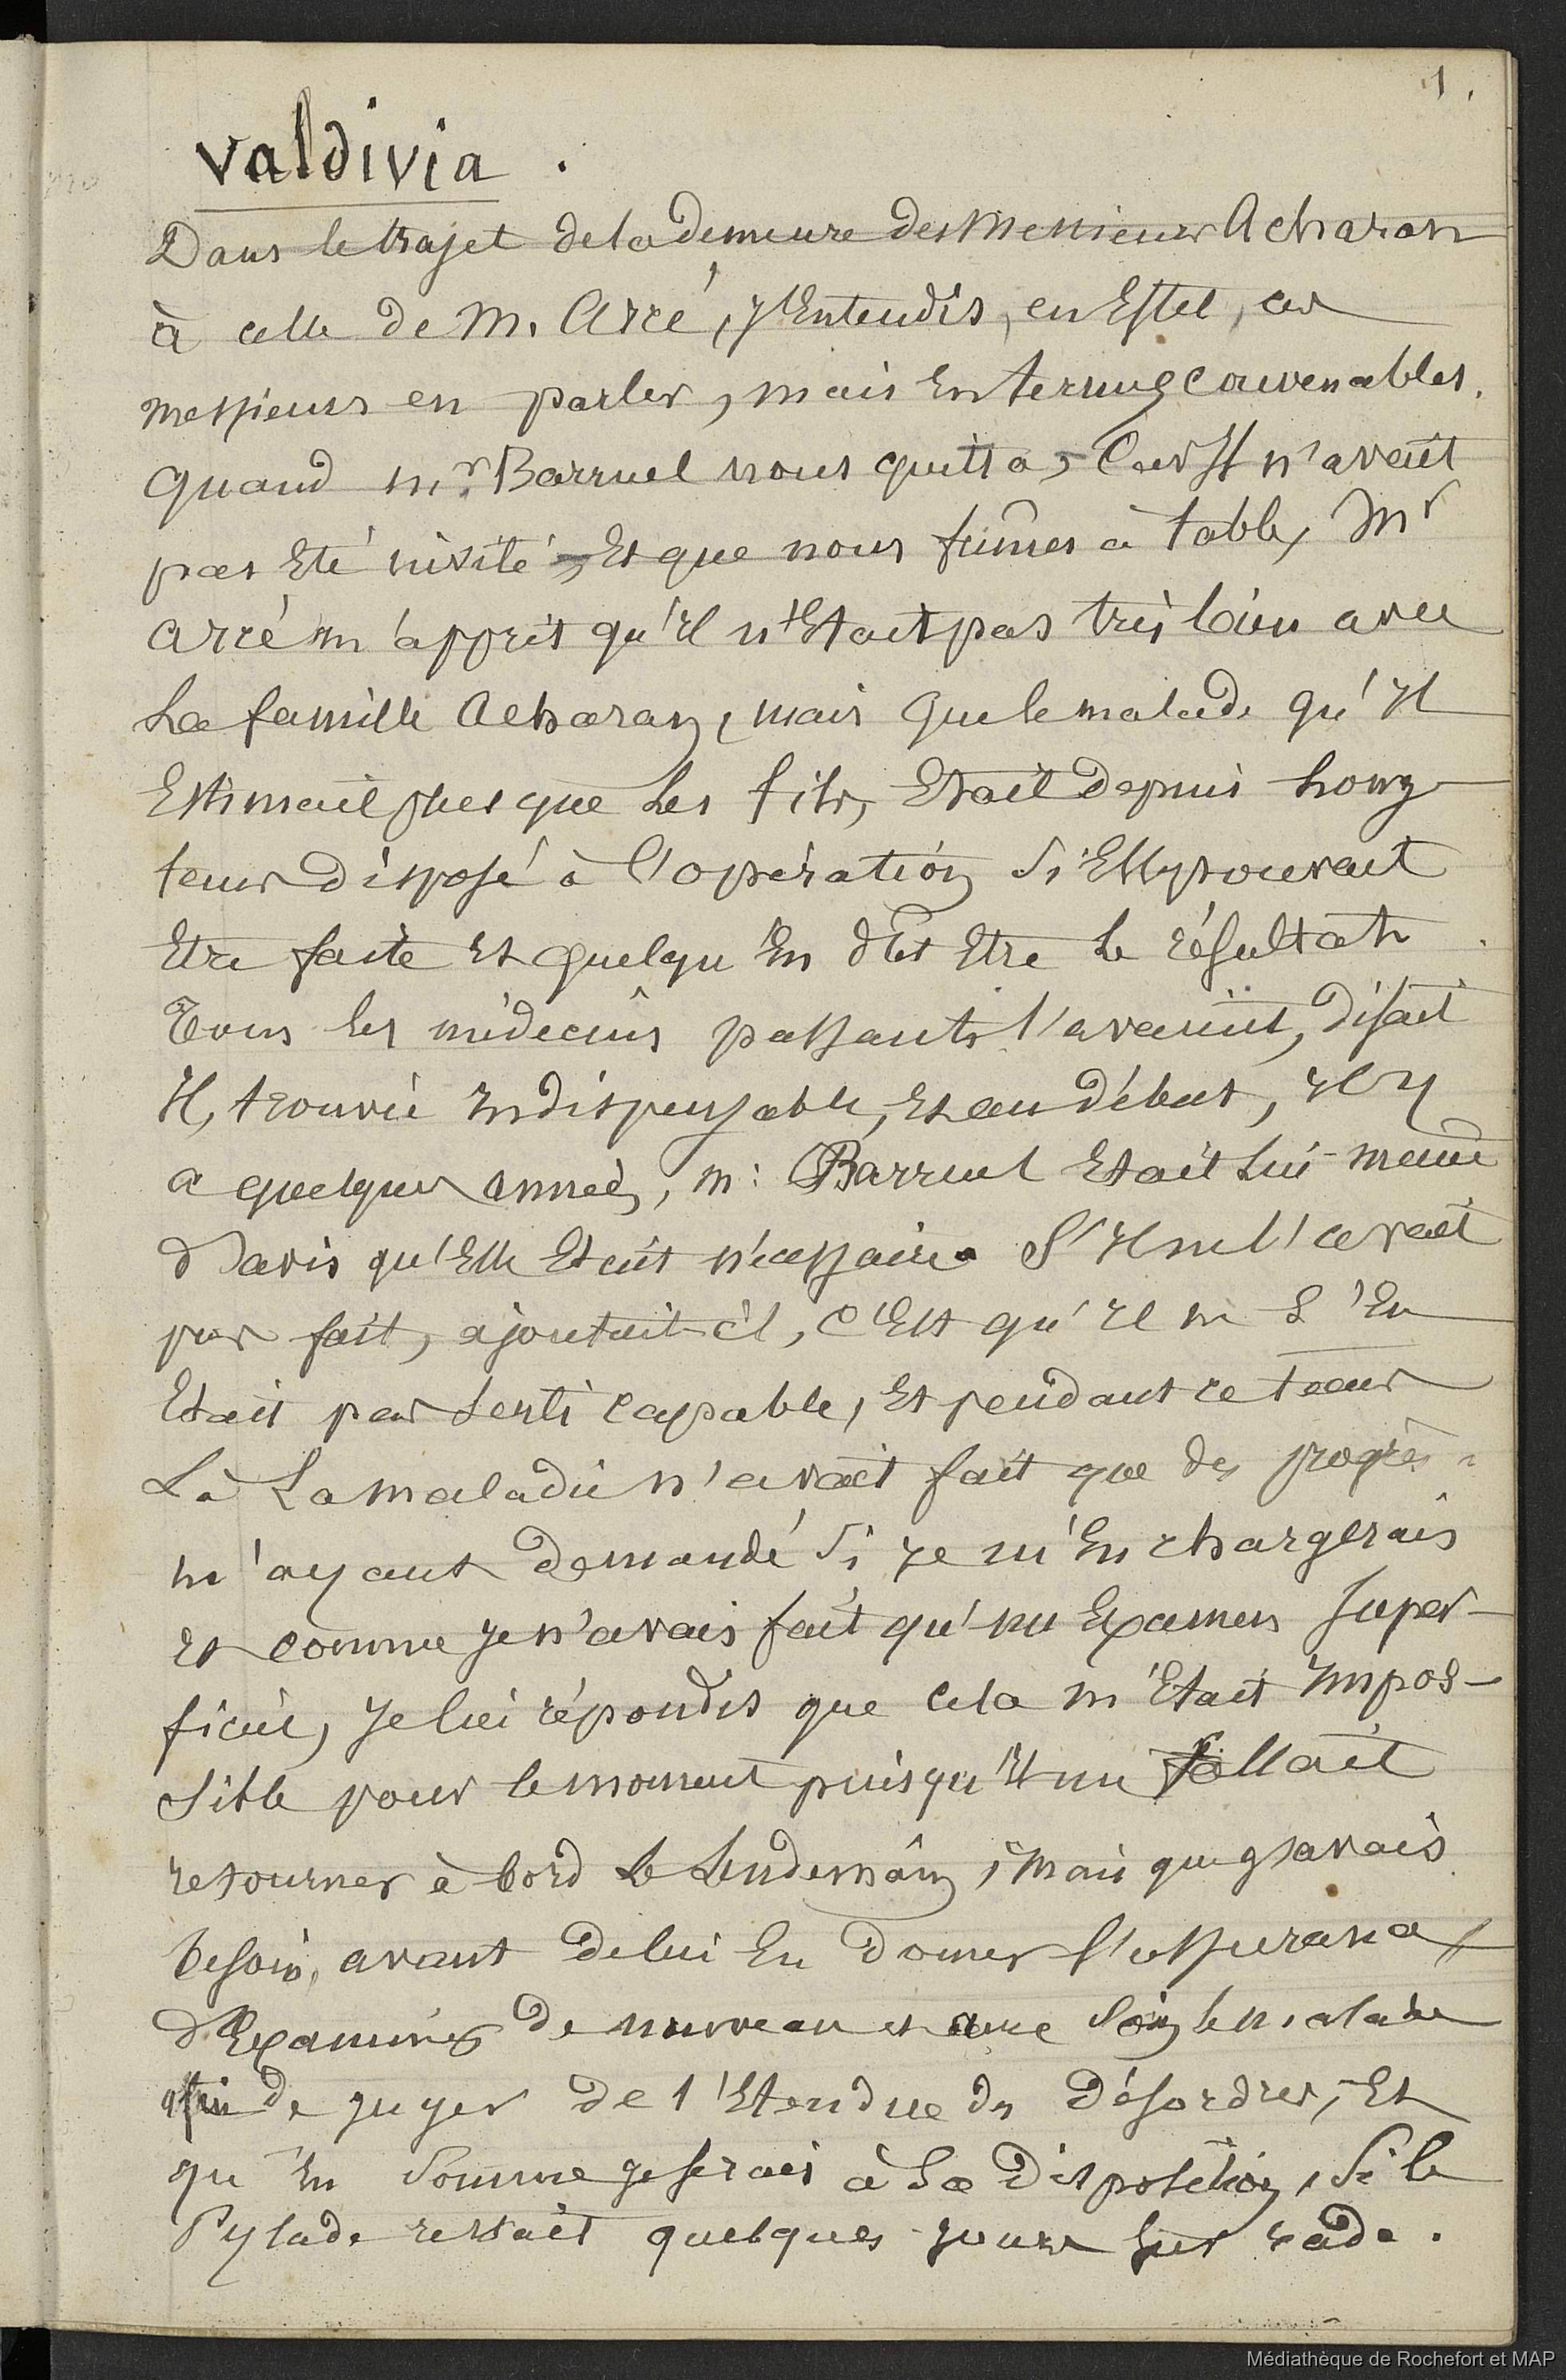 1.
Valdivia.
Dans le trajet de la demeure des Messieurs Acharan
à celle de M. Arré, j'Entendis, en Effet, ces
messieurs en parler, mais En termes convenables.
quand Mr. Barruel nous quitta, Car Il n'avait
pas Eté invité, Et que nous fûmes à table, Mr
Arré m'apprit qu'Il n'Etait pas très bien avec
La famille Acharan, mais que le malade qu'Il
Estimait plus que Les fils, Etait depuis Long-
temps disposé à l'opération Si Elle pouvait
Etre faite Et quelqu'En dût Etre Le résultat
Tous les médecins passants l'avaient, disait
Il, trouvée Indispensable, Et au début, Il y
a quelques années, M. Barruel Etait Lui-même
d'avis qu'Elle Etait nécessaire. S'Il ne l'avait
pas fait, ajoutait-il, C'Est qu'Il ne S'En
Etait pas Senti Capable, Et pendant ce temps
Là La maladie n'avait fait que des progrès.
M'ayant demandé Si Je m'En chargerais
Et comme Je n'avais fait qu'un Examen Super-
ficiel, Je lui répondis que cela m'Etait Impos-
sible pour le moment puisqu'Il me fallait
retourner à bord Le Lendemain, Mais que J'avais
besoin, avant de lui En donner l'assurance,
d'Examiner de nouveau et avec Soin le malade
afin de juger de l'Etendue des Désordres, Et
qu'En Somme Je Serais à Sa Disposition, Si le
Pylade restait quelques Jours Sur rade.
Médiathèque de Rochefort et MAP